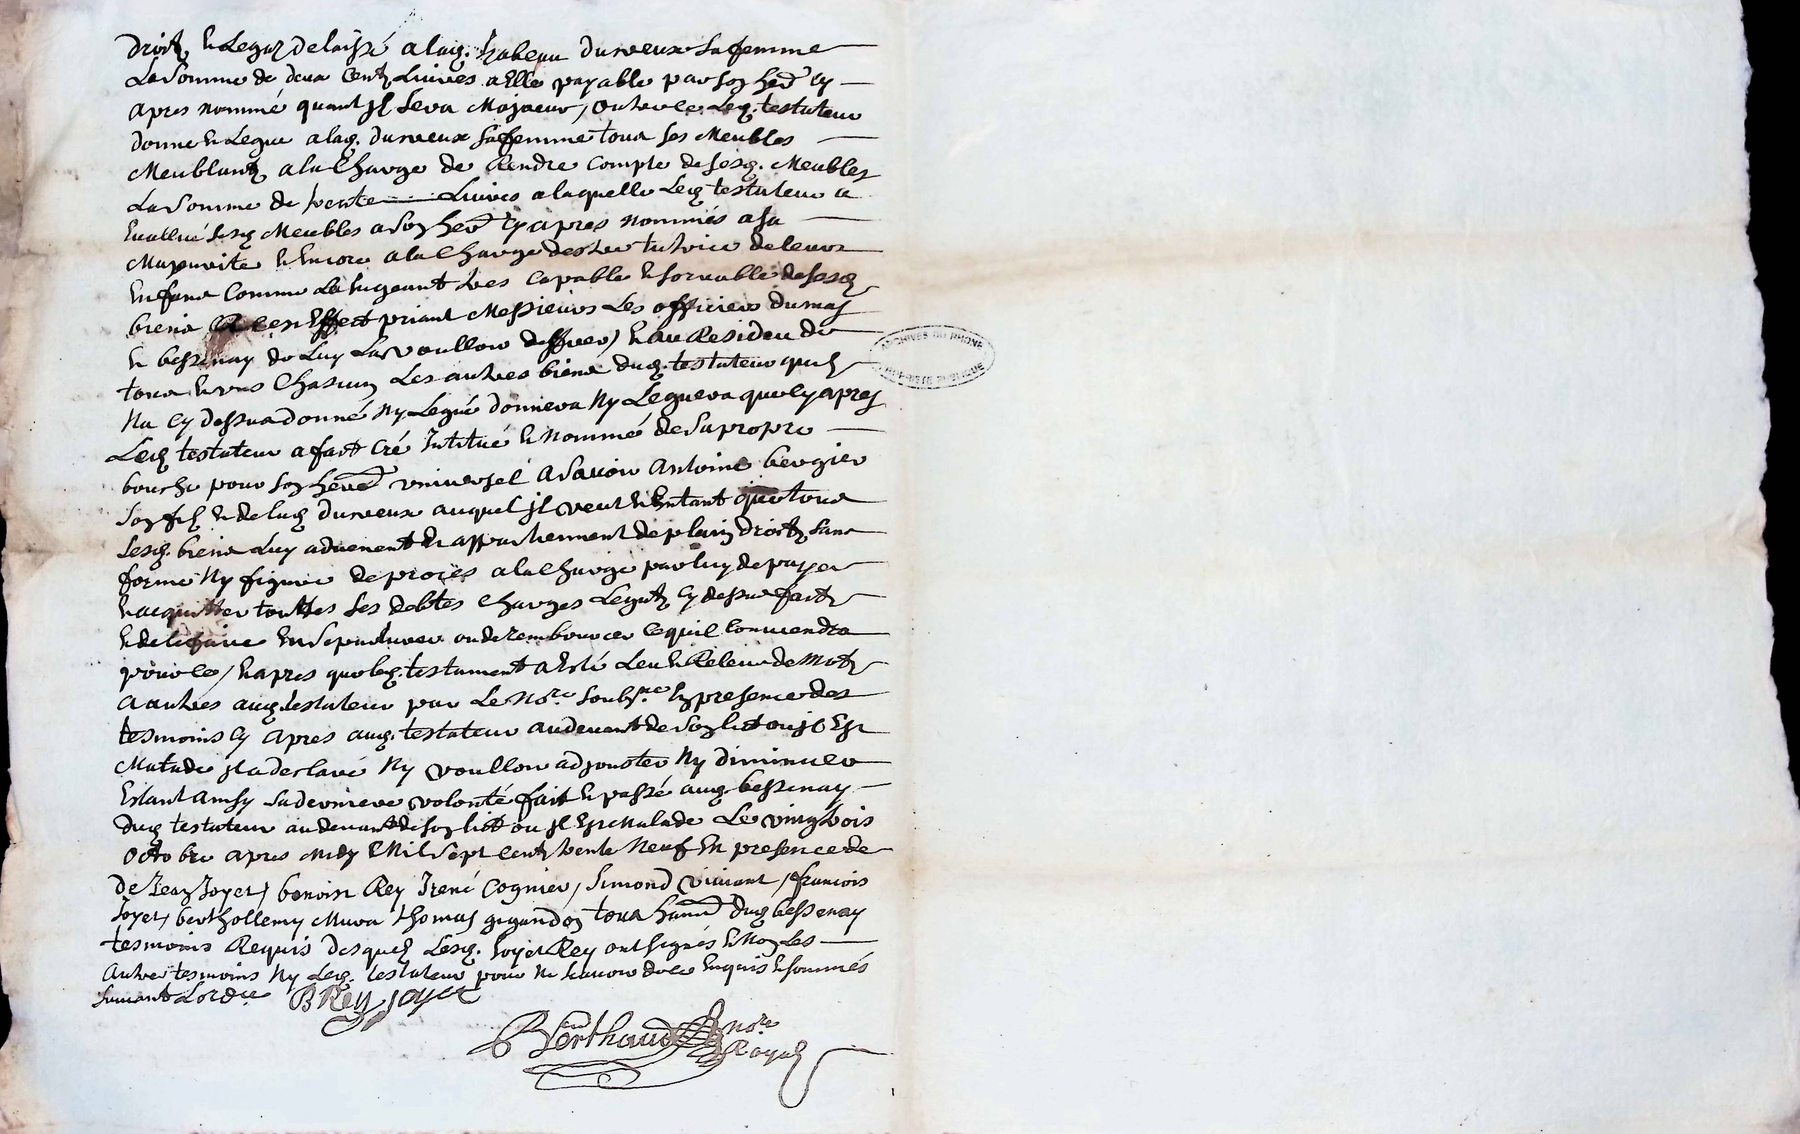 droit, et Legue delaisse a lad. Izabeau durveux sa femme
La somme de deux cents Livres a Elle payable par son her cy
apres nommé quant jl sera Majaeur, outre ce Led. testateur
donne et Legue a lad. durveux sa femme tous ses Meubles
Meublants a la Charge de Rendre Compte de sesd. Meubles
La somme de trente Livres a laquelle Led testateur a
Evallué sesd Meubles a son her cy apres nommés a sa
Majeurité et Encore a la Charge destre tutrice de leurs
Enfans Comme La jugeant tres Capable et de sesd
biens a cest Effect priant Messieurs Les officiers du mas
et bessenay de Luy La voulloir defferer, et au Resideu de
tous et uns Chascuns Les autres biens dud. testateur quil
Na cy dessus donné Ny Legué donnera Ny Leguera que cy apres
Led testateur a fait cré Intitué et nommé de sa propre
bouche pour son hered universel a savoir Antoine bergier
son fils et de lad durveux auquel jl veut et Entant que tous
sesd. biens Luy advenent et appartiennent de plain droit sans
forme Ny figure de proces a la Charge par luy de payer
et acquitter touttes ses debtes Charges Legats cy dessus faits
et de le faire Ensepulturer ou de rembourcer ce quil conviendra
pour ce, et apres que led. testament a Esté Leu et Releu de Mots
a autres aud. testateur par Le nore soubsne En presence des
tesmoins cy apres aud. testateur au devant de son lict ou jl Est
Malade jl a declaré Ny voulloir adjouster Ny diminuer
Estant Ainsy sa derniere volonté fait et passé aud bessenay
dud testateur au devant de son lict ou jl Est Malade Le vingtrois
octobre apres midy Mil sept cents trente Neuf En presence de
de Jean Joyet, benoist Rey Irené Cognier, Simond viviant, francois
Joyet, berthollemy Mura thomas gigandon tous dud bessenay
tesmoins Requis desquels Lesd. Joyet Rey ont signés et Non Les
Autres tesmoins Ny Led. testateur pour Ne scavoir de ce Enquis et sommés
suivant Lordce BRey joyet
Berthaud nore
Royal
ARCHIVES DU RHONE